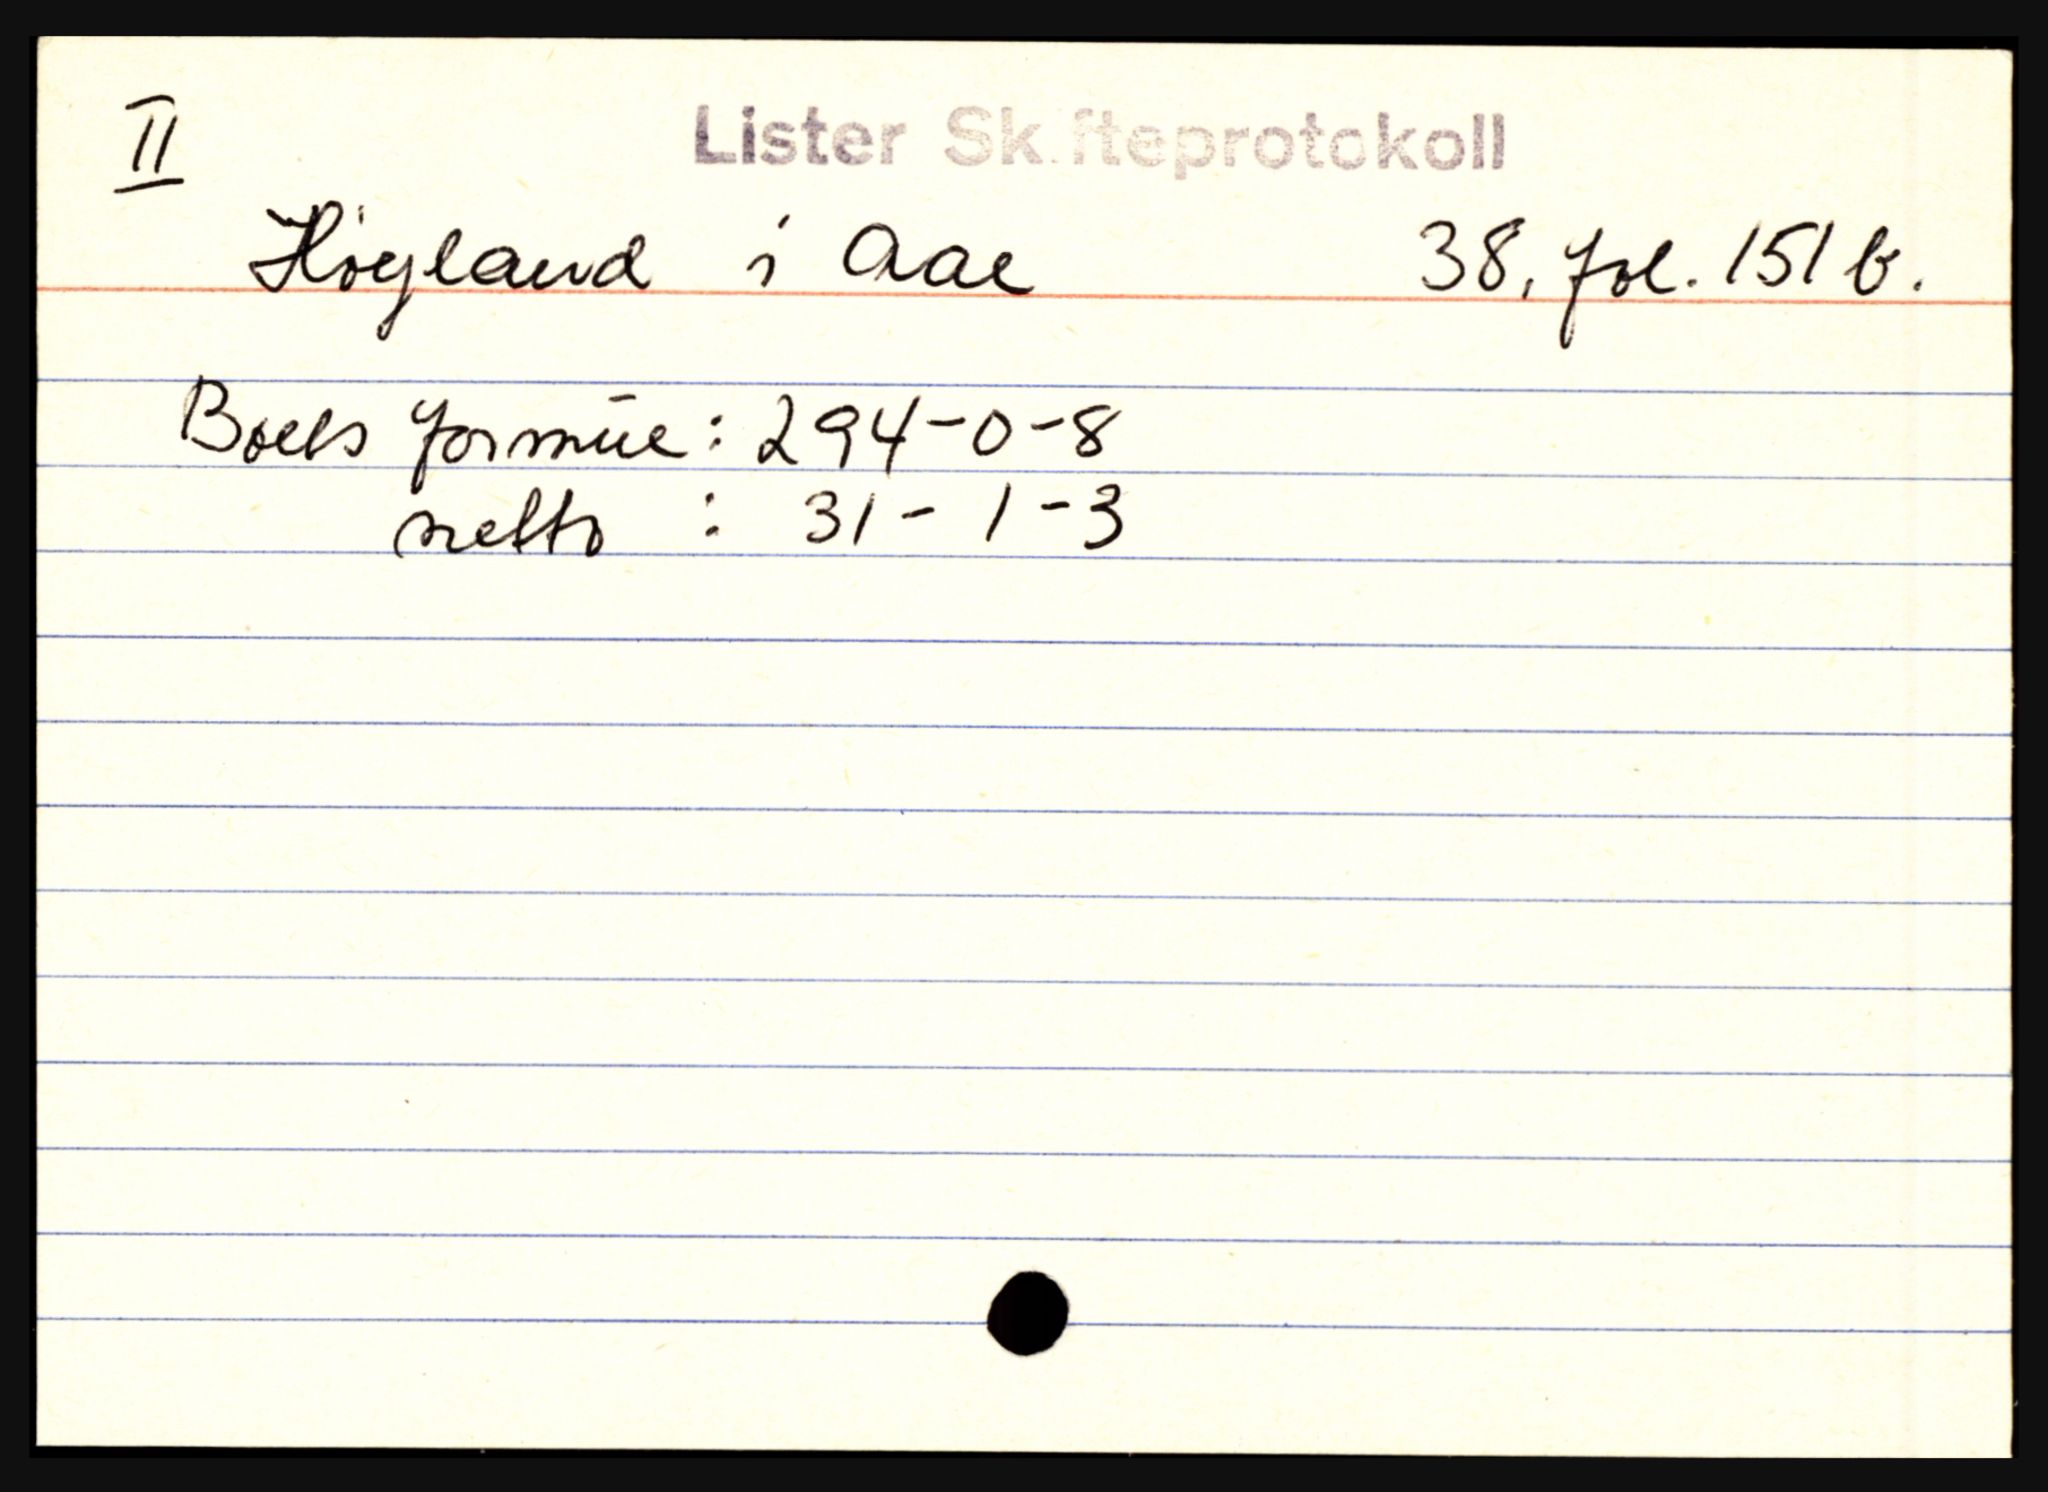 II
Lister Skifteprotokoll
Høyland i Aae 38, fol. 151 b.
Boets formūe: 294-0-8
netto : 31-1-3